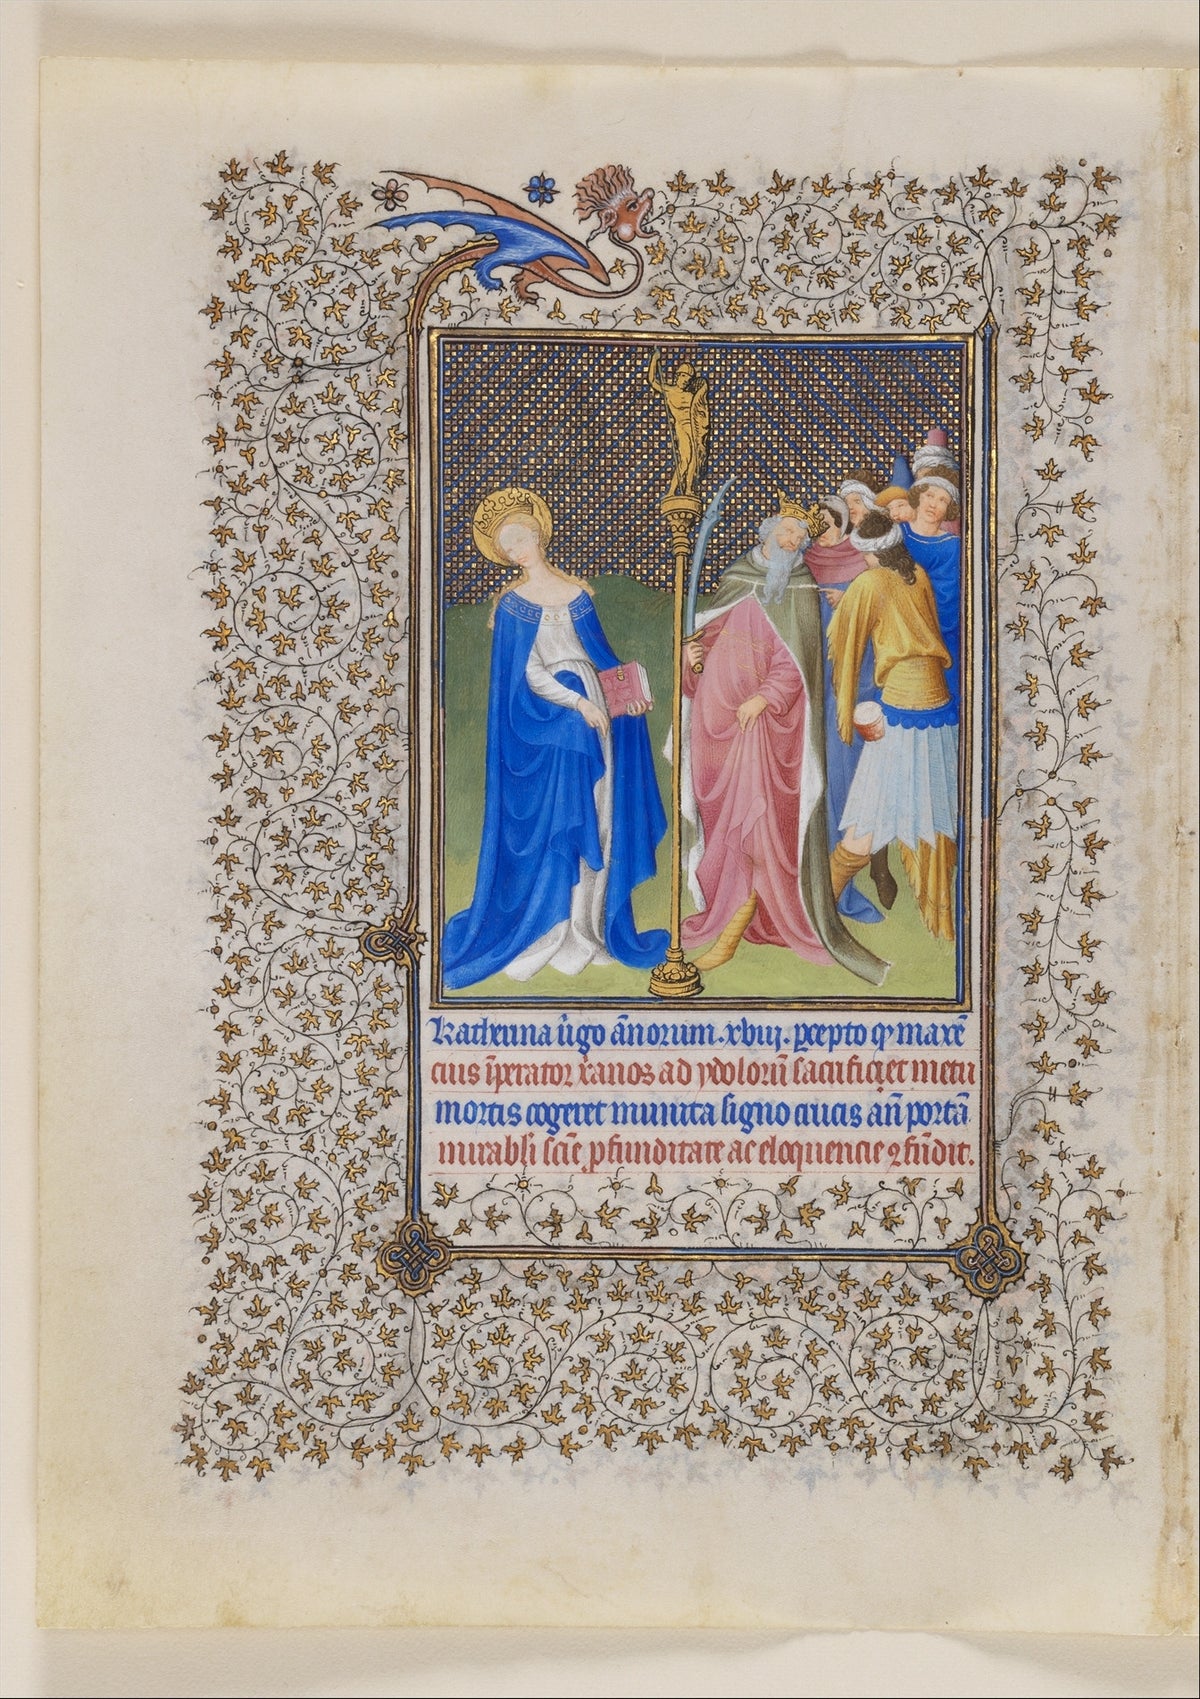 Katherina ūgo ānorum .xviij. p̄cepto qͥ maxē
cius īperator x̄anos ad ydolorū sacrificiet metu
mortis cogeret munita signo crucis añ portā
mirabli sciē ꝓfunditate ac eloquencie ꝯfūdit.